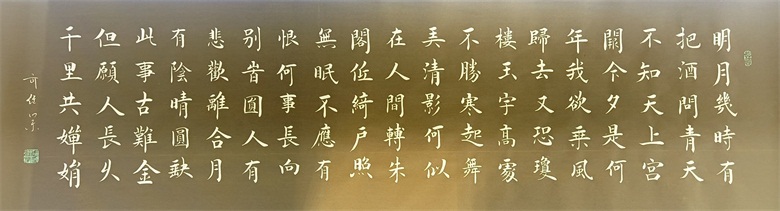 明月幾時有
把酒問青天
不知天上宮
闕今夕是何
年我欲乘風
歸去又恐瓊
樓玉宇高處
不勝寒起舞
弄清影何似
在人間轉朱
閣低綺戶照
無眠不應有
恨何事長向
別旹圓人有
悲歡離合月
有陰晴圓缺
此事古難全
但願人長久
千里共嬋娟